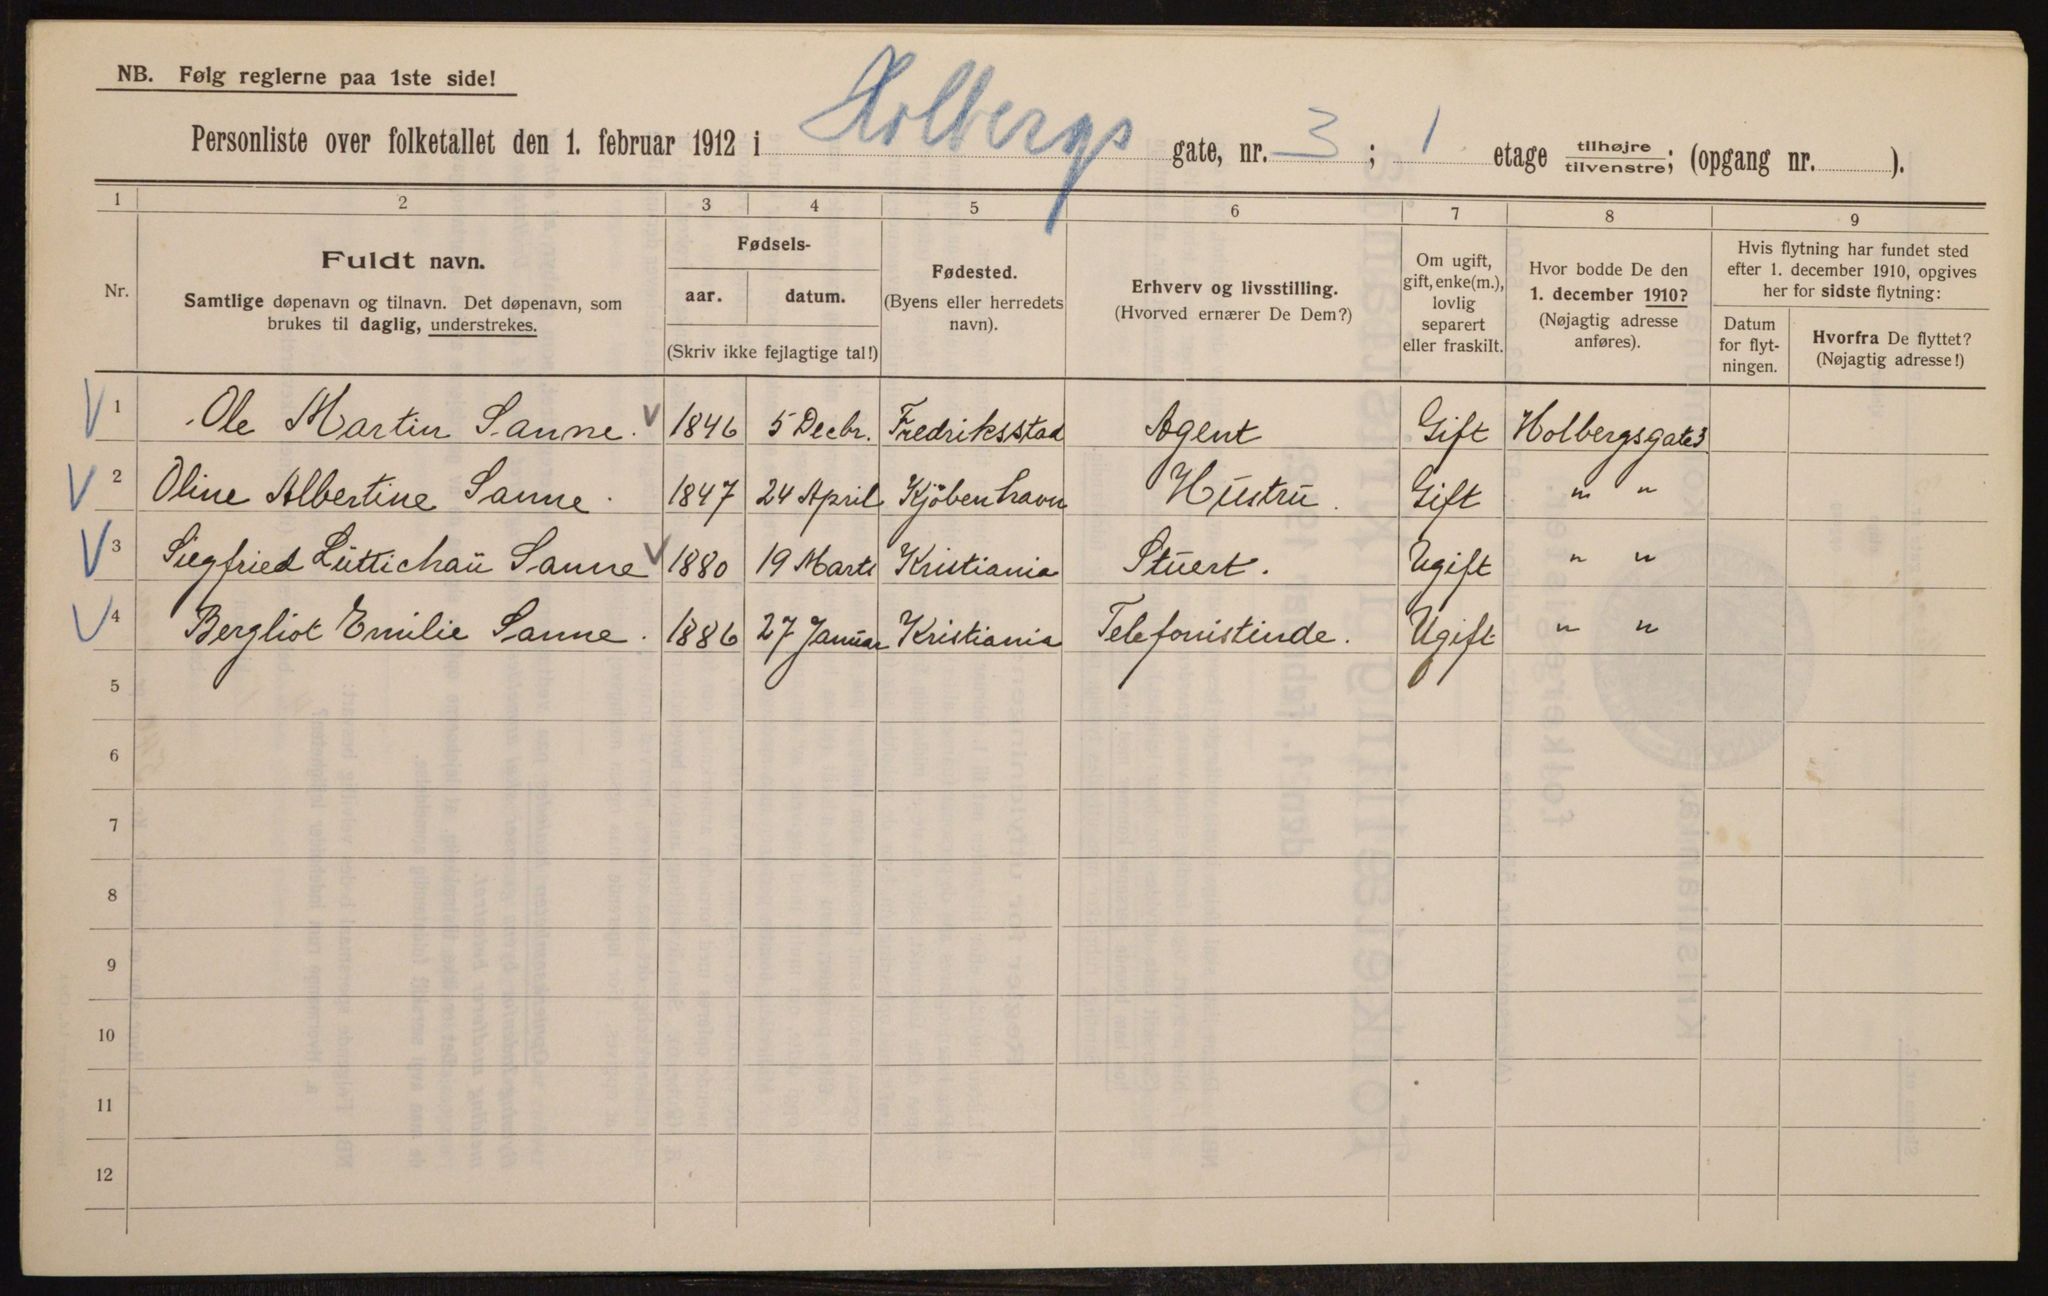 NB. Følg reglerne paa 1ste side!
Personliste over folketallet den 1. februar 1912 i Holbergs gate, nr. 3; 1 etage tilhøjre/tilvenstre; (opgang nr. ).
1 2 3 4 5 6 7 8 9
Nr.
Fuldt navn.
Samtlige døpenavn og tilnavn. Det døpenavn, som
brukes til daglig, understrekes.
Fødsels-
aar. datum.
(Skriv ikke fejlagtige tal!)
Fødested.
(Byens eller herredets
navn).
Erhverv og livsstilling.
(Hvorved ernærer De Dem?)
Om ugift,
gift, enke(m.),
lovlig
separert
eller fraskilt.
Hvor bodde De den
1. december 1910?
(Nøjagtig adresse
anføres).
Hvis flytning har fundet sted
efter 1. december 1910, opgives
her for sidste flytning:
Datum
for flyt-
ningen.
Hvorfra De flyttet?
(Nøjagtig adresse!)
V 1 Ole Martin Sanne. V 1846 5 Decbr. Fredriksstad Agent Gift Holbergsgate 3
V 2 Oline Albertine Sanne. 1847 24 April Kjöbenhavn Hustru. Gift " "
V 3 Siegfried Lüttichau Sanne V 1880 19 Marts Kristiania Stuert. Ugift " "
V 4 Bergliot Emilie Sanne. 1886 27 Januar Kristiania Telefonistinde. Ugift " "
5
6
7
8
9
10
11
12